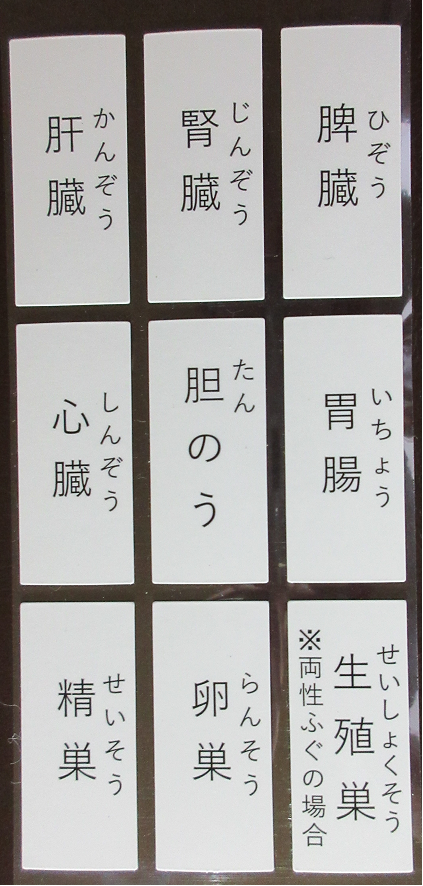 脾臓
ひぞう
腎臓
じんぞう
肝臓
かんぞう
胃腸
いちょう
胆のう
たん
心臓
しんぞう
生殖巣
せいしょくそう
※両性ふぐの場合
卵巣
らんそう
精巣
せいそう